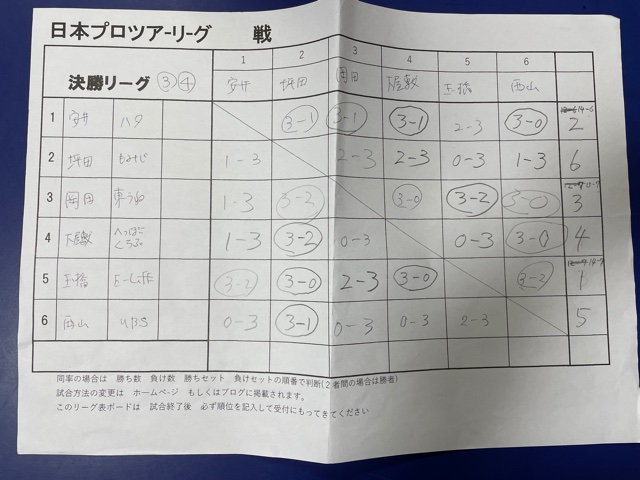 日本プロツアーリーグ 戦
1 2 3 4 5 6
決勝リーグ ③④ 安井 坪田 岡田 大屋敷 玉橋 西山
1 安井 ハタ 3-1 3-1 3-1 2-3 3-0 2
2 坪田 もみじ 1-3 2-3 2-3 0-3 1-3 6
3 岡田 1-3 3-2 3-0 3-2 3-0 3
4 大屋敷 1-3 3-2 0-3 0-3 3-0 4
5 玉橋 3-2 3-0 2-3 3-0 3-2 1
6 西山 UBS 0-3 3-1 0-3 0-3 2-3 5
同率の場合は 勝ち数 負け数 勝ちセット 負けセットの順番で判断(2者間の場合は勝者)
試合方法の変更は ホームページ もしくはブログに掲載されます。
このリーグ表ボードは 試合終了後 必ず順位を記入して受付にもってきてください